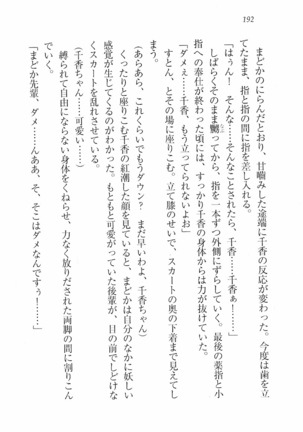 192
まどかのにらんだとおり、甘噛みした途端に千香の反応が変わった。今度は歯を立
てたまま、指と指の間に舌を差し入れる。
「はぅん！　そんな……そんなことされたら、千香……千香ぁ！……」
しばらくそのまま嬲ってから、指を一本ずつ外側にずらしていく。最後の薬指と小
指への奉仕が終わった頃には、すっかり千香の身体からは力が抜けていた。
「ダメぇ……千香、もう立ってられないよお」
すとん、とその場に座りこむ。立て膝のせいで、スカートの奥の下着まで見えてし
まう。
（あらあら、これくらいでもうダウン？　まだ早いわよ、千香ちゃん）
くったりと座りこむ千香の紅潮した顔を見ていると、まどかは自分のなかに妖しい
感覚が生じてくるのがわかった。もともと可愛がっていた後輩が、目の前でしどけな
くスカートを乱れさせている。
（千香ちゃん……可愛い……）
縛られて自由にならない身体をくねらせ、力なく放りだされた両脚の間に割りこん
でいく。
「まどか先輩、ダメ……んああ、そ、そこはダメなんですぅ！……」